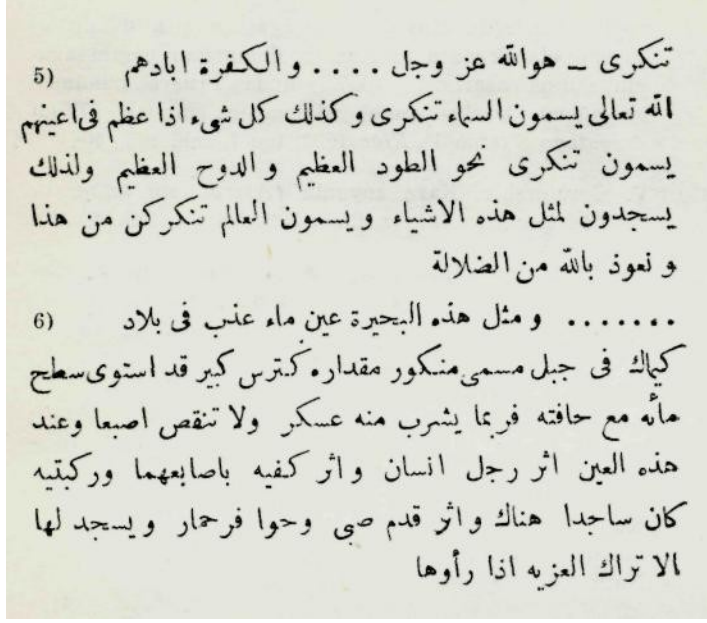 تنكرى — هوالله عز وجل . . . . و الكفرة ابادهم (5
الله تعالى يسمون السماء تنكرى وكذلك كل شىء اذا عظم فى اعينهم
يسمون تنكرى نحو الطود العظيم و الدوح العظيم ولذلك
يسجدون لمثل هذه الاشياء ويسمون العالم تنكركن من هذا
و نعوذ بالله من الضلالة
. . . . . . . و مثل هذه البحيرة عين ماء عذب فى بلاد (6
كيماك فى جبل مسمى منكور مقداره كترس كبير قد استوى سطح
مائه مع حافته فربما يشرب منه عسكر ولا تنقص اصبعا وعند
هذه العين اثر رجل انسان واثر كفيه باصابعهما وركبتيه
كان ساجدا هناك واثر قدم صبى وحوا فرحمار ويسجد لها
الا تراك العزيه اذا رأوها